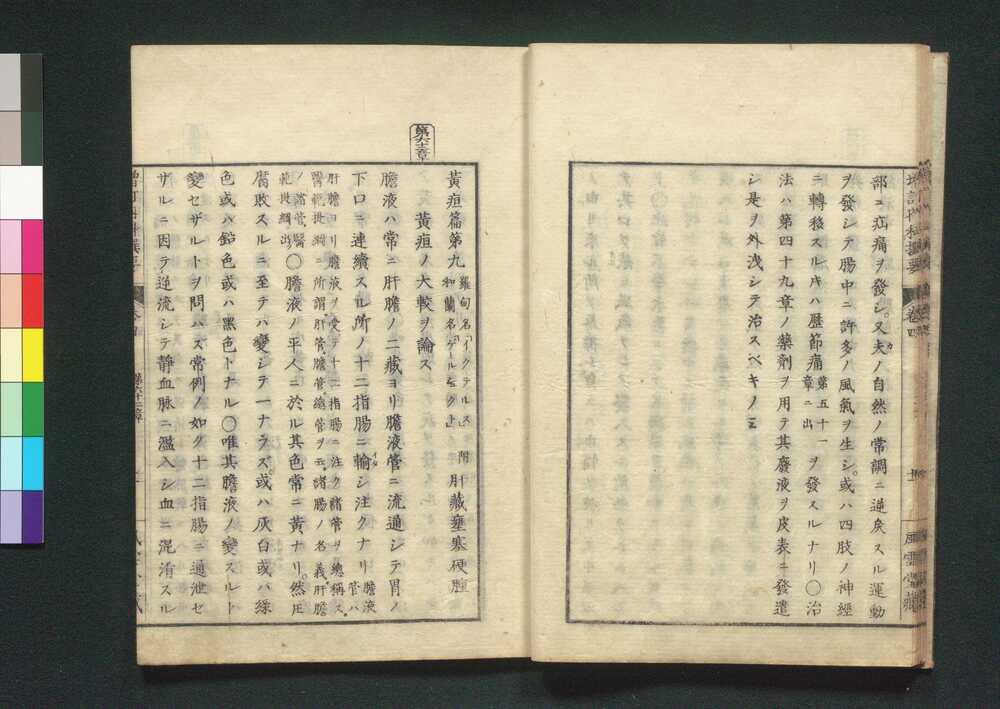 増訂内科撰要 卷四 風雲堂藏
部ニ疝痛ヲ發シ。又夫ノ自然ノ常調ニ逆戻スル運動
ヲ發シテ腸中ニ許多ノ風氣ヲ生シ。或ハ四肢ノ神經
ニ轉移スルキハ歴節痛 第五十一章ニ出 ヲ發スルナリ〇治
法ハ第四十九章ノ藥劑ヲ用テ其廢液ヲ皮表ニ發遣
シ是ヲ外洩シテ治スベキノミ
第六十三章
黄疸篇第九 羅甸名「イクテルス」和蘭名「ゲールシュクト」 附 肝藏壅塞硬腫
黄疸ノ大較ヲ論ス
膽液ハ常ニ肝膽ノ二藏ヨリ膽液管ニ流通シテ胃ノ
下口ニ連續スル所ノ十二指腸ニ輸シ注クナリ 膽液管ハ
肝膽ヨリ膽液ヲ受テ十二指腸ニ注ク諸管ヲ總稱ス。
醫範提綱ニ所謂肝管。膽管。總管ヲ云。諸腸ノ名義。肝膽
ノ諸管。醫範提綱ニ出 〇膽液ノ平人ニ於ル其色常ニ黄ナリ。然𪜈
腐敗スルニ至テハ變シテ一ナラズ。或ハ灰白或ハ緑
色或ハ鉛色或ハ黑色トナル〇唯其膽液ノ變スルト
變セザルトヲ問ハズ常例ノ如ク十二指腸ニ通泄セ
ザルニ因テ逆流シテ靜血脉ニ濫入シ血ニ混淆スル